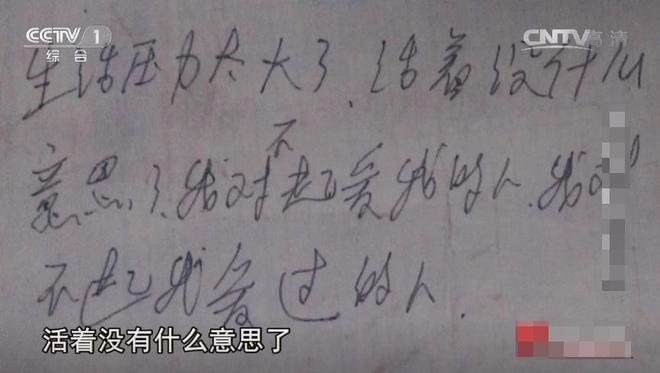 CCTV 1
综合
CNTV高清
生活压力太大了、活着没什么
不
意思了、我对起爱我的人、我对
不起我爱过的人.
活着没有什么意思了